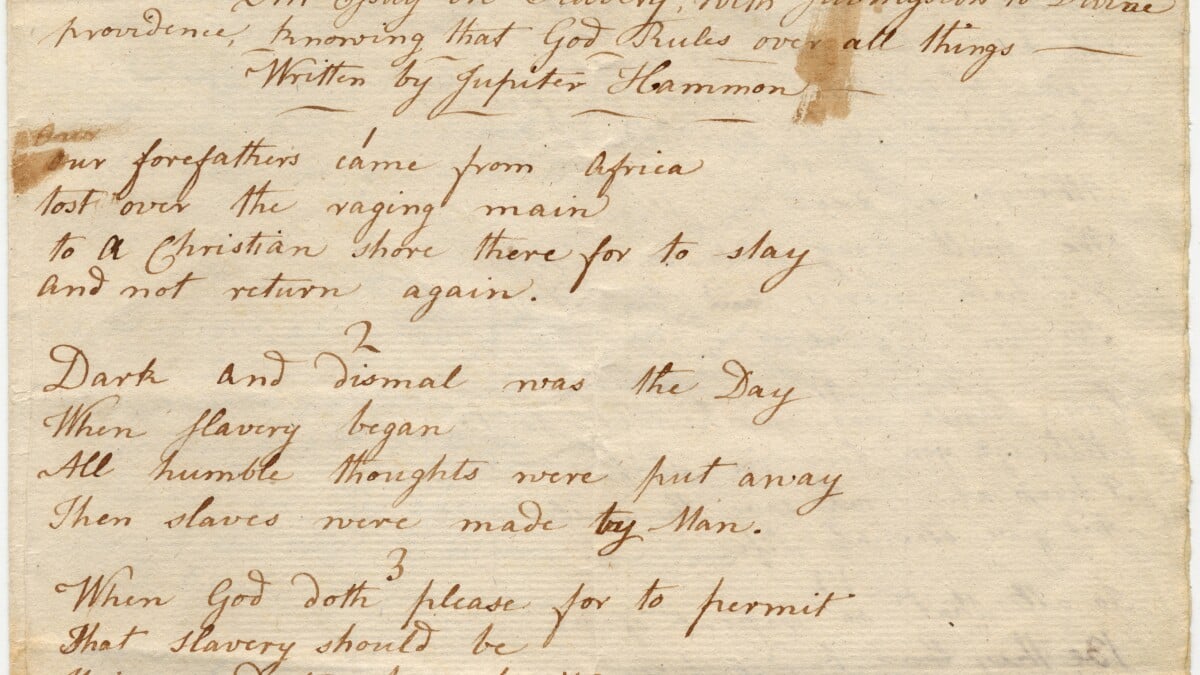 An Essay on Slavery, with submission to Divine
providence, knowing that God Rules over all things
Written by Jupiter Hammon
1
our forefathers came from africa
tost over the raging main
to a Christian shore there for to stay
and not return again.
2
Dark and dismal was the Day
When slavery began
All humble thoughts were put away
Then slaves were made by Man.
3
When God doth please for to permit
That slavery should be